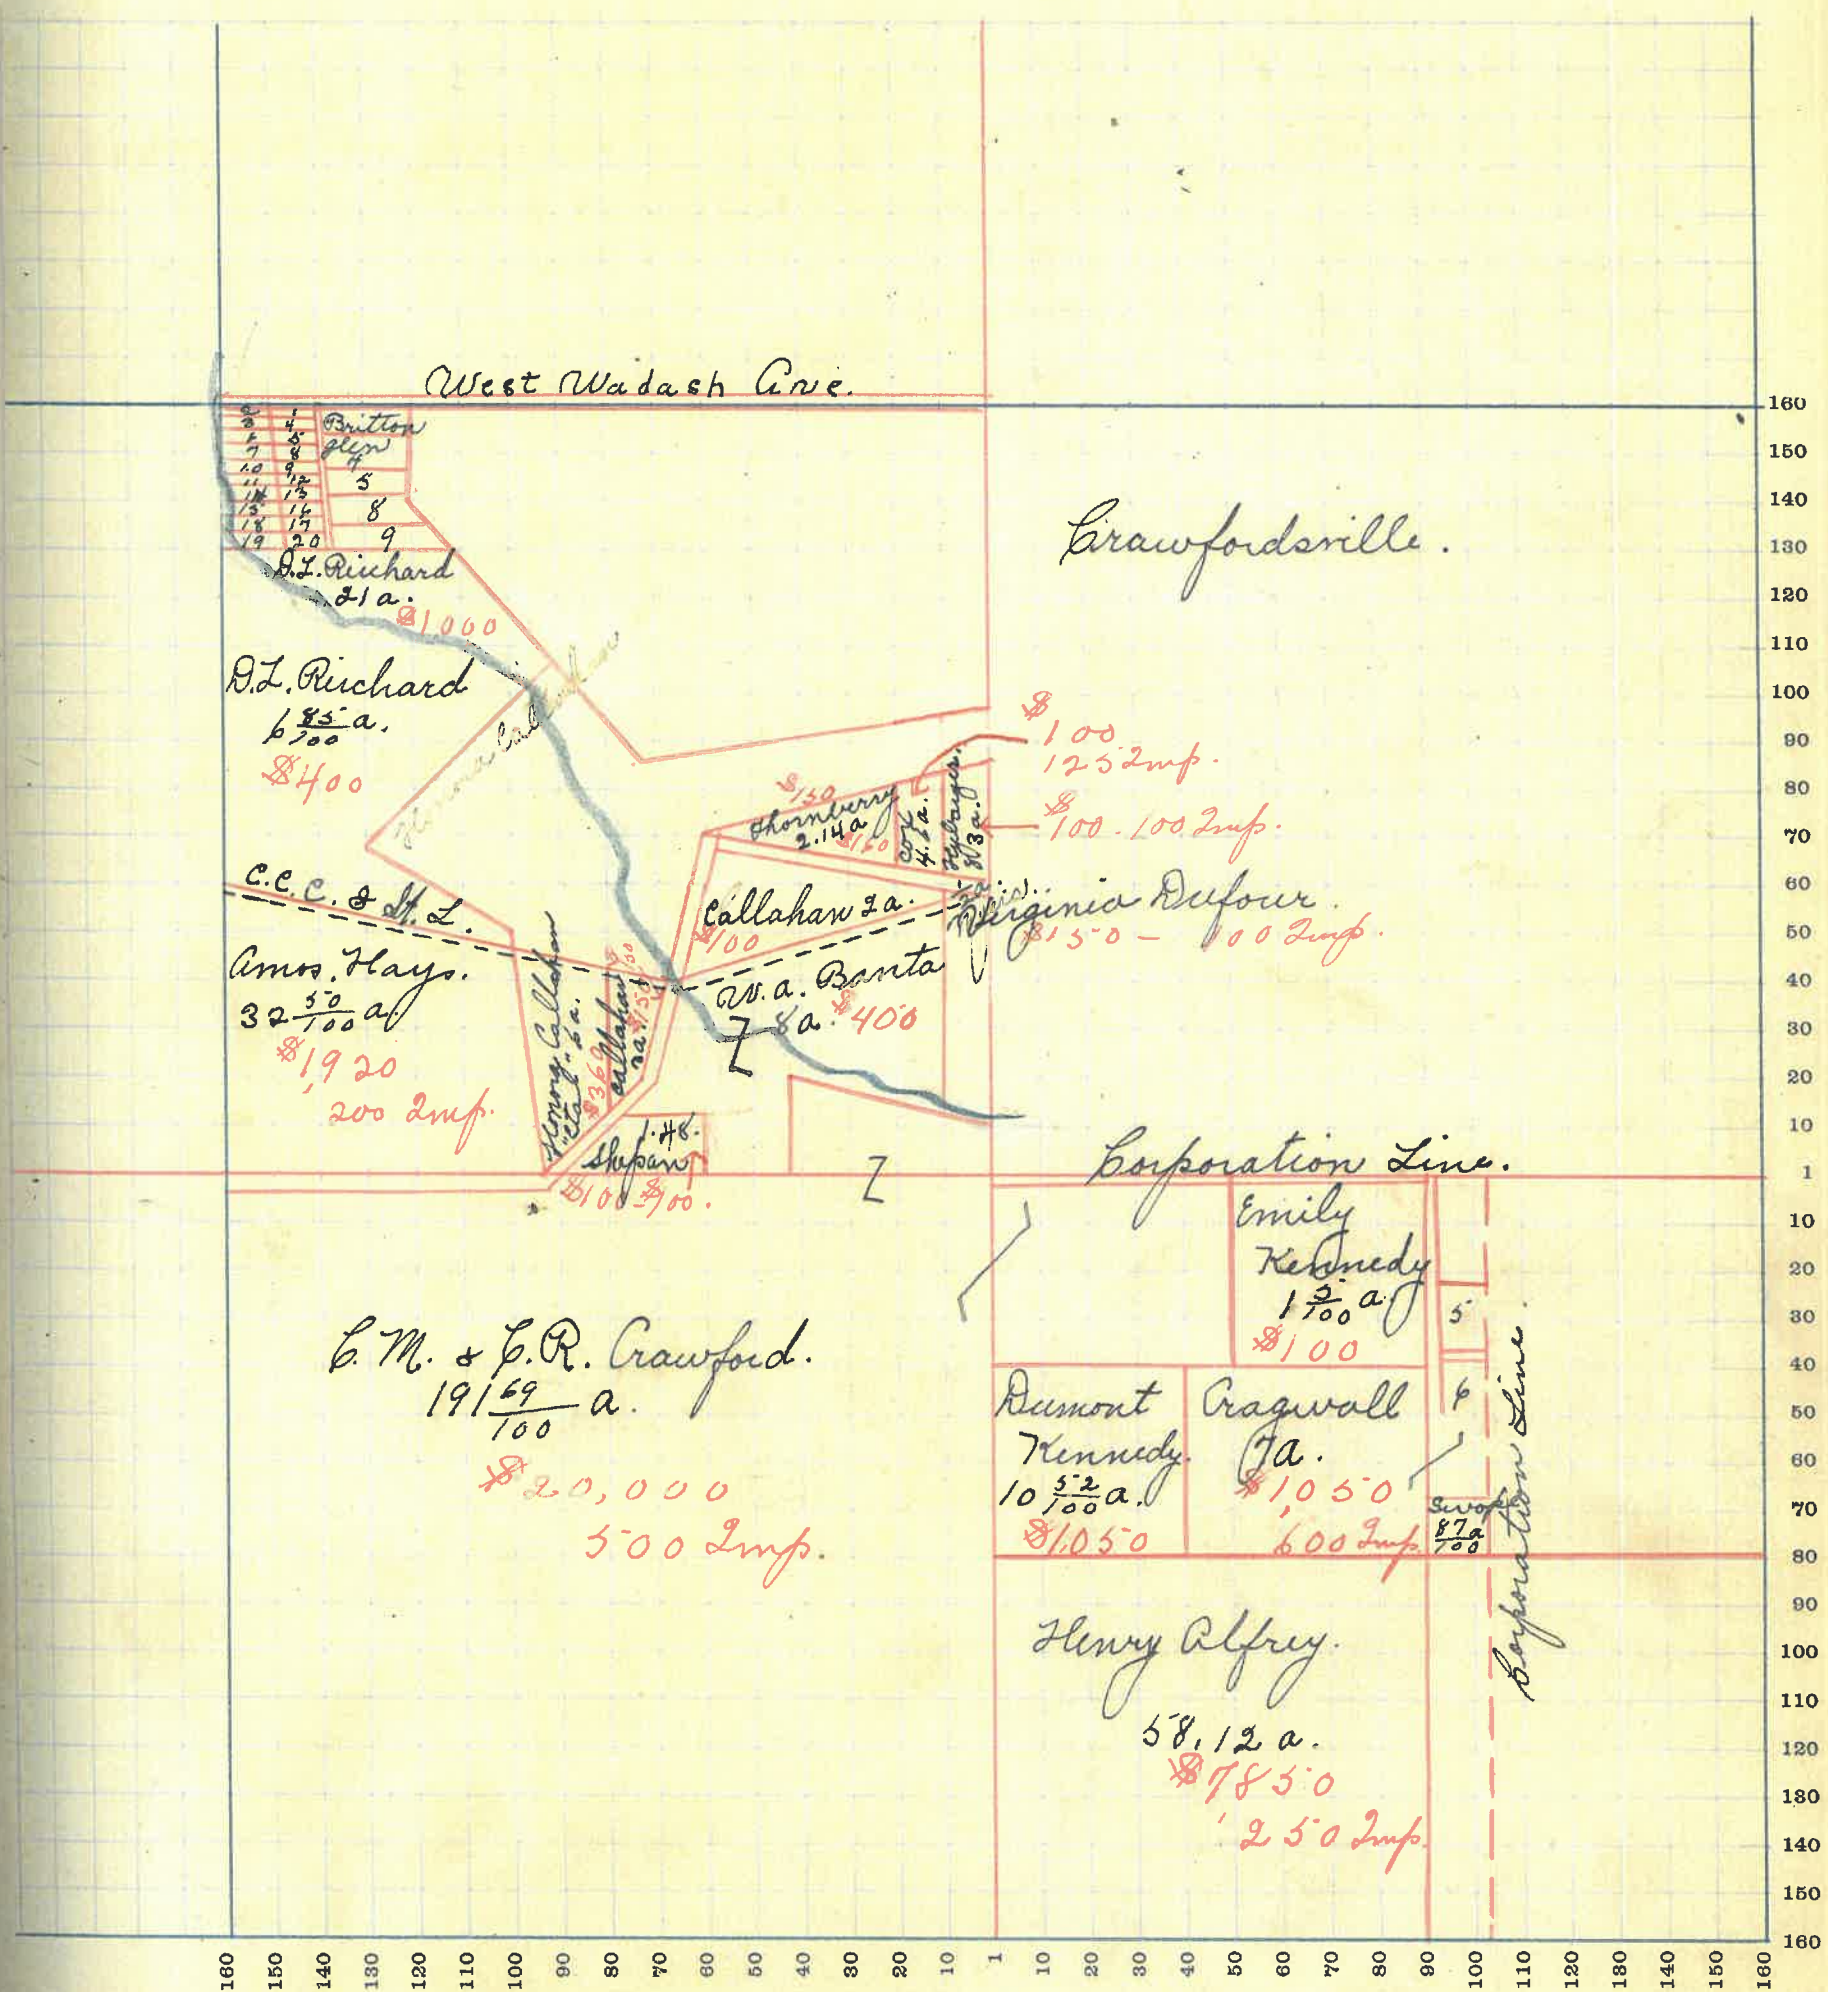 West Wadash Ave.
2 1
3 4
6 5
7 8
10 9
11 12
14 13
15 16
18 17
19 20
Britton
glen
4
5
8
9
D.L. Ruchard
21 a.
$1,000
D.L. Ruchard
6 85/100 a.
$400
Crawfordsville.
$
100
125 Imp.
$
100. 100 Imp.
$150
Thornberry
2.14 a
$160
Cox
4.6 a.
83 a.
Callahan
C.C.C. & St. L.
Callahan 2 a.
$100
Virginia Dufour.
$150 - 100 Imp.
Amos. Hays.
32 50/100 a.
$1,920
200 Imp.
Honora Callahan
"Etal" 6 a.
$360
Callahan
2 a.
$150
W. a. Banta
8 a. $400
1.48.
Shepan
$100 - $100.
Corporation Line.
Emily
Kennedy
1 5/100 a.
$100
5
6
C. M. & C. R. Crawford.
191 69/100 a.
$20,000
500 Imp.
Dumont
Kennedy.
10 52/100 a.
$1,050
Cragwall
7 a.
$1,050
600 Imp.
Swope
87/100 a
Corporation Line.
Henry Alfrey.
58.12 a.
$7850
250 Imp.
160
150
140
130
120
110
100
90
80
70
60
50
40
30
20
10
1
10
20
30
40
50
60
70
80
90
100
110
120
130
140
150
160
160 150 140 130 120 110 100 90 80 70 60 50 40 30 20 10 1 10 20 30 40 50 60 70 80 90 100 110 120 130 140 150 160